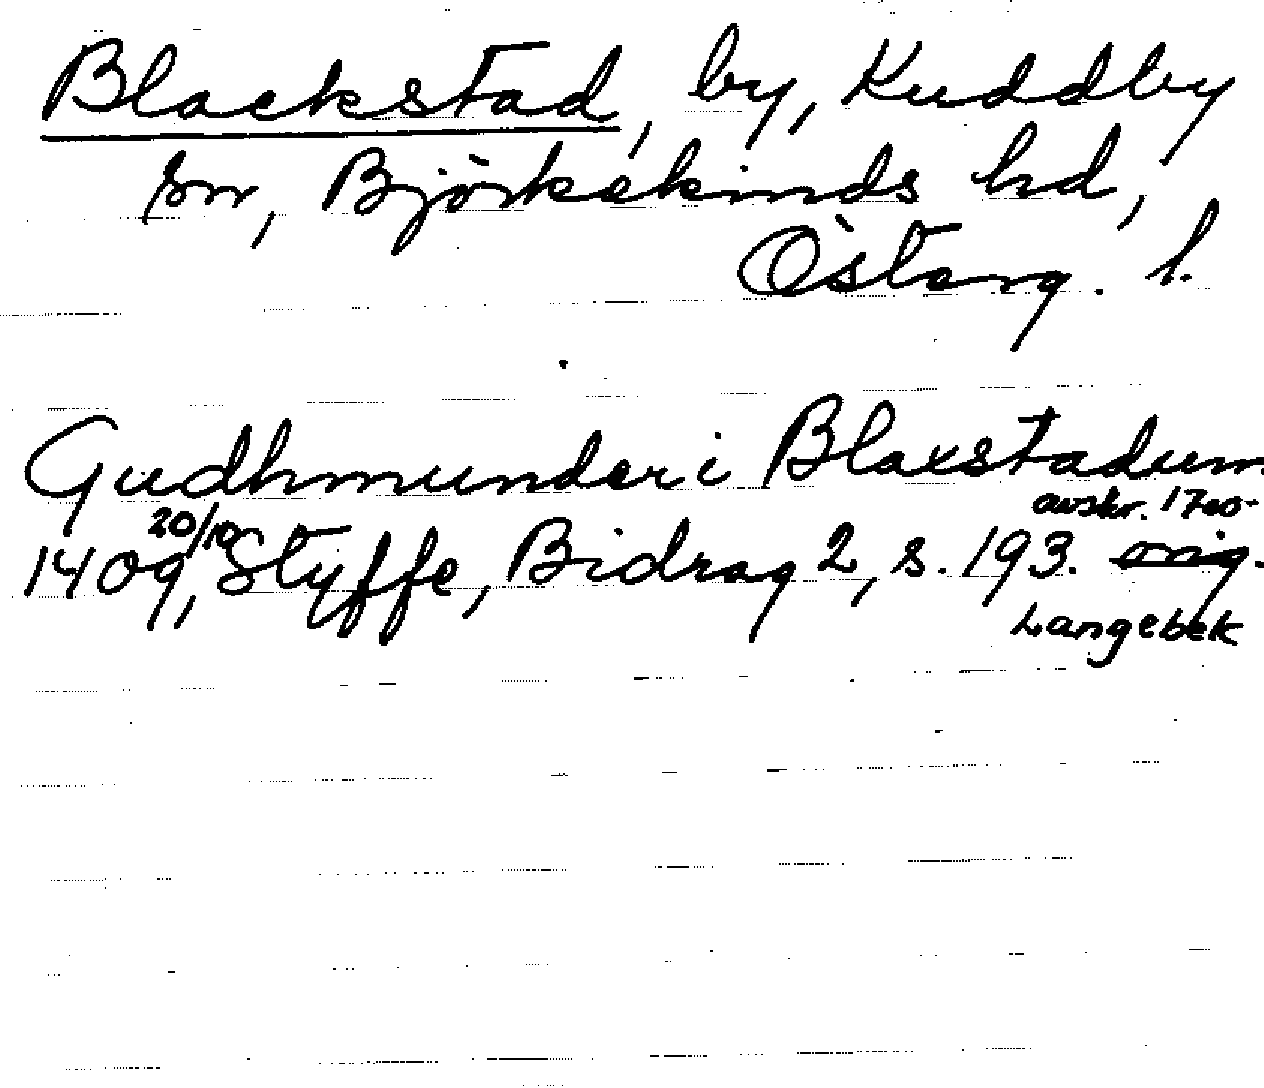 Blackstad, by, Kuddby
sn, Björkekinds hd,
Österg. l.
Gudhmunder i Blaxstadum
avskr. 1700-
20/10
1409, Styffe, Bidrag 2, s. 193. orig.
Langebek